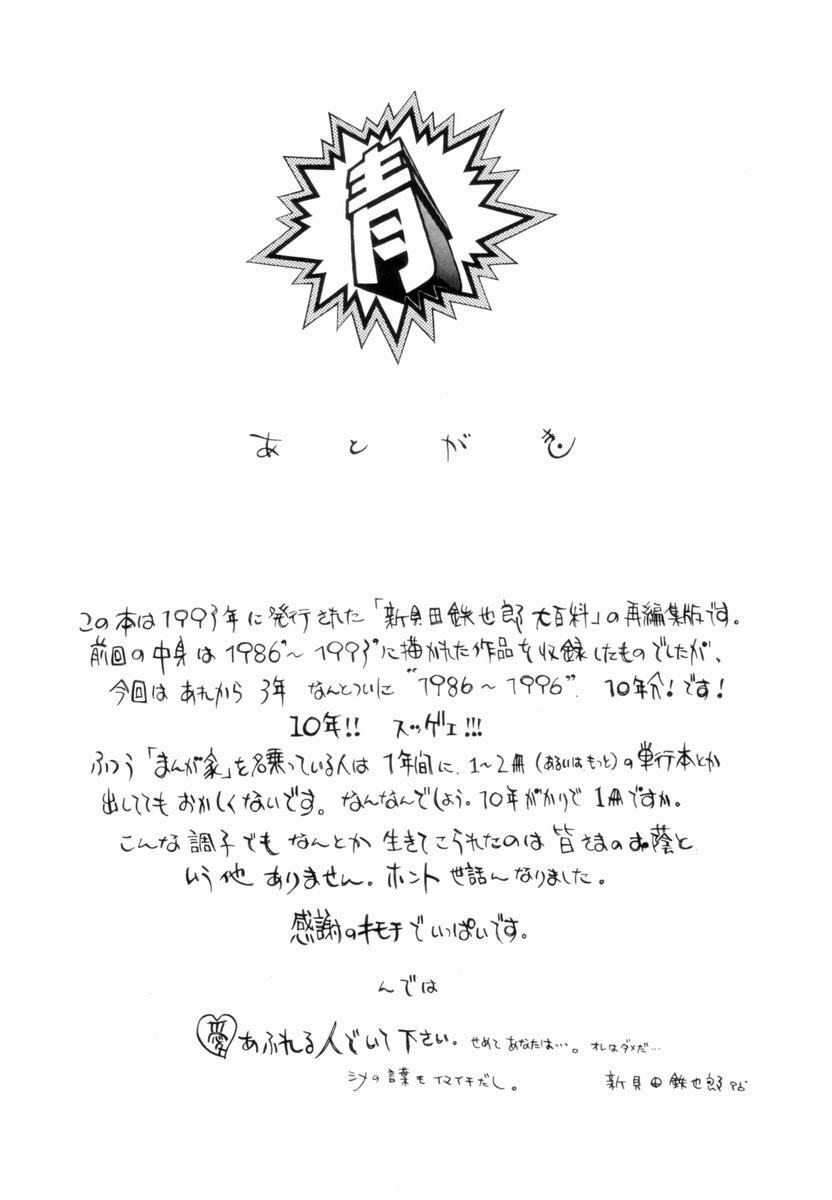 青
あとがき
この本は1993年に発行された「新貝田鉄也郎大百科」の再編集版です。
前回の中身は1986"〜1993"に描かれた作品を収録したものでしたが、
今回はあれから3年なんとついに"1986〜1996"。10年分!です!
10年!! スッゲェ!!!
ふつう「まんが家」を名乗っている人は1年間に、1〜2冊(あるいはもっと)の単行本とか
出しててもおかしくないです。なんなんでしょう。10年がかりで1冊ですか。
こんな調子でもなんとか生きてこられたのは皆さまのお蔭と
いう他ありません。ホント世話んなりました。
感謝のキモチでいっぱいです。
んでは
愛あふれる人でいて下さい。せめてあなたは…。オレはダメだ…
シメの言葉もイマイチだし。 新貝田鉄也郎